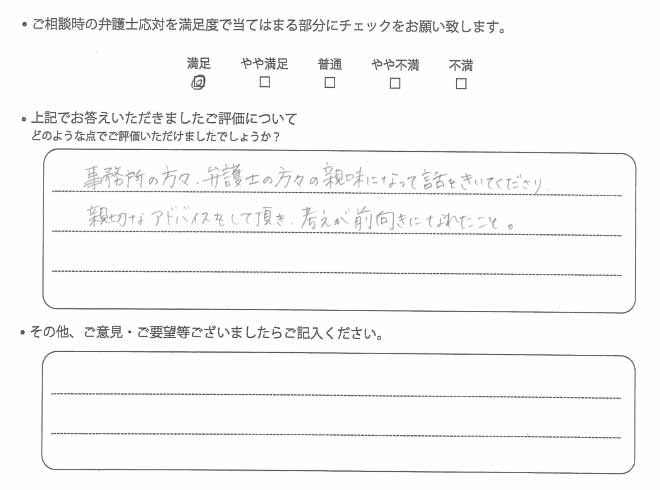 ・ご相談時の弁護士応対を満足度で当てはまる部分にチェックをお願い致します。
満足 やや満足 普通 やや不満 不満
・上記でお答えいただきましたご評価について
どのような点でご評価いただけましたでしょうか？
事務所の方々、弁護士の方々の親味になって話をきいてくださり、
親切なアドバイスをして頂き、考えが前向きになれたこと。
・その他、ご意見・ご要望等ございましたらご記入ください。